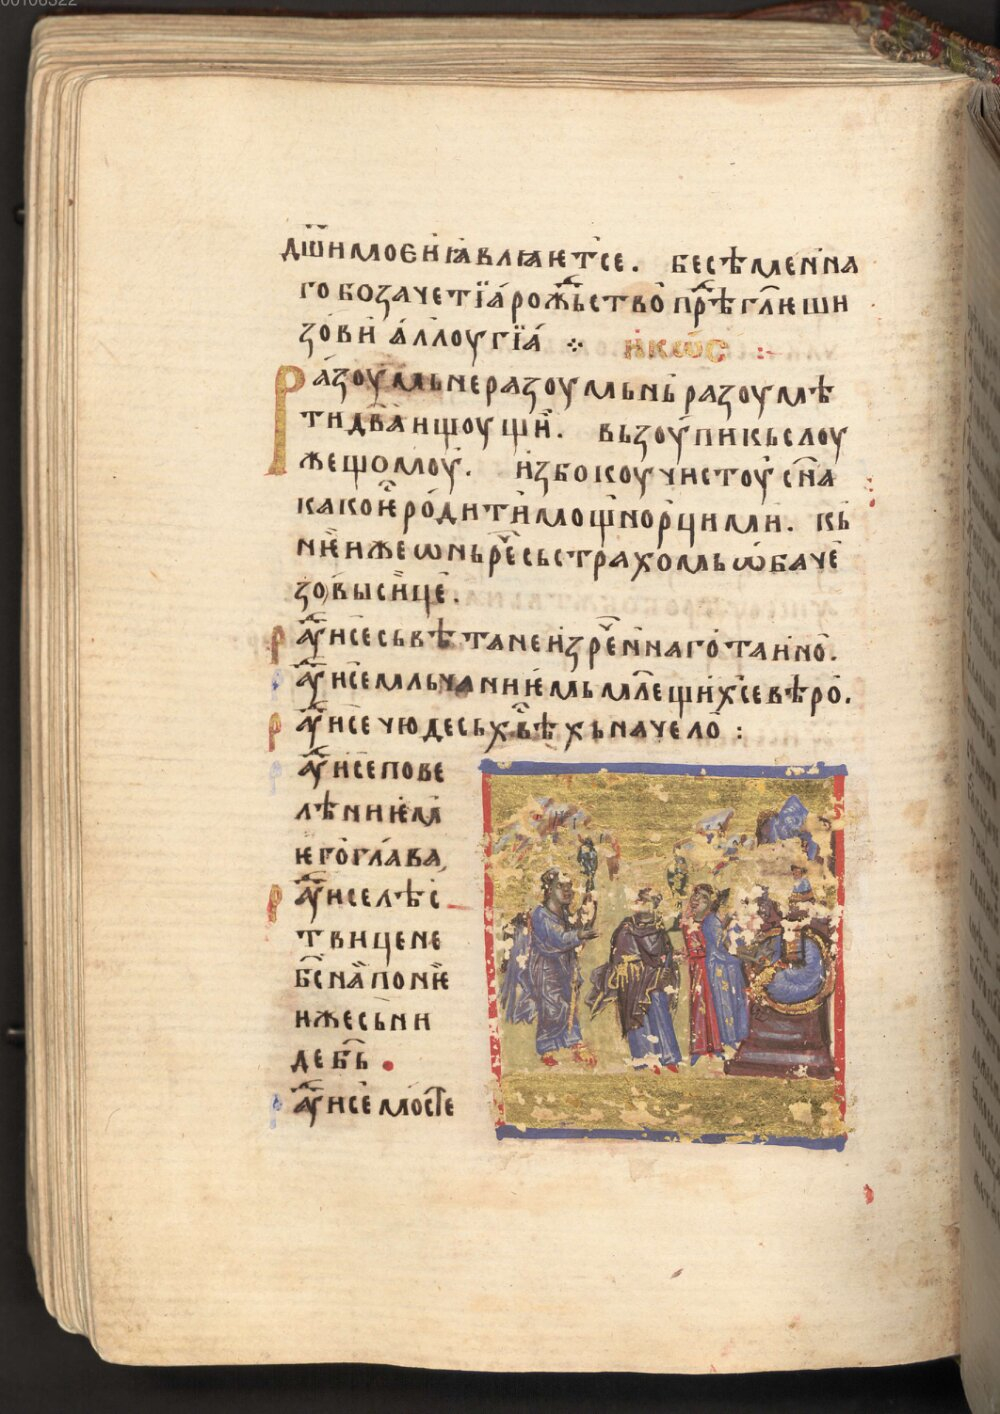 дш҃и моѥи ꙗвлꙗѥтсе. бесѣменна
го бо зачетїа рожⷭьство прѣгл҃ѥши
зови аллоугїа ⁘ икѡс :-
Разоумь неразоумьнь разоумѣ
ти дв҃а ищоущи. вьзоупи кь слоу
жещомоу. из бокоу чистоу сн҃а
како ѥⷭ родити мощно рци ми. кь
нѥи же ѡнь реⷱ сь страхомь ѡбаче
зовы сице.
раⷣуи се сьвѣта неизреⷱннаго таино.
раⷣуи се мльчаниѥмь млещих се вѣро.
раⷣуи се чюдесь хв҃ѣхь начело :
раⷣуи се пове
лѣниѥмь
ѥго глава,
раⷣуи се лѣс
твице не
бс҃наꙗ по нѥи
иже сьни
де б҃ь.
раⷣуи се мосте